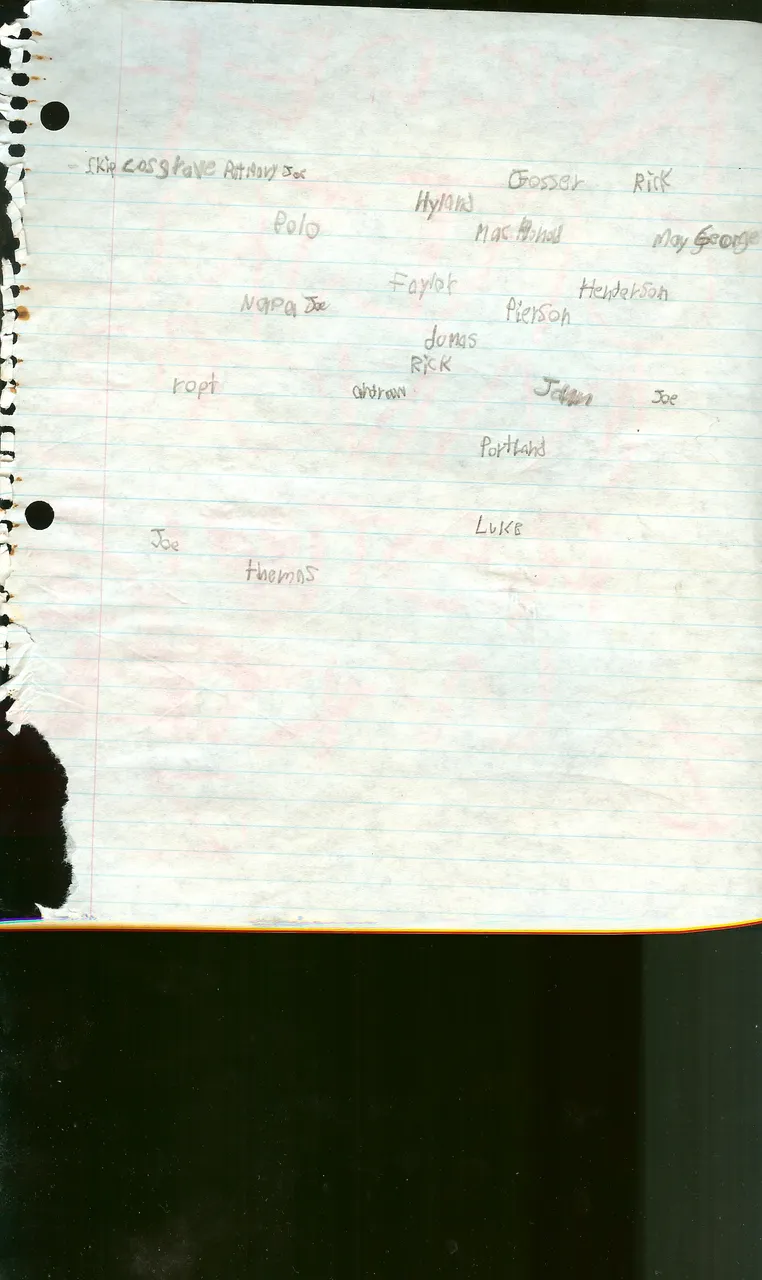 - Skip cosgrave Pat Mary Joe
Gosser Rick
Hyland
Polo Mac May George
Faylor Henderson
Napa Joe Pierson
dumas
Rick
ropt andrew John Joe
Portland
Luke
Joe
themas